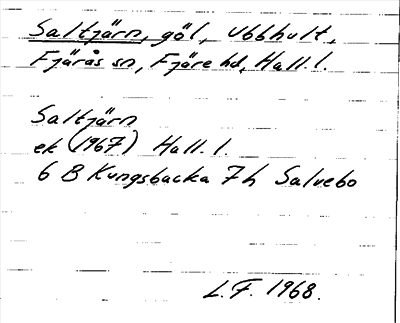 Saltjärn, göl, Ubbhult,
Fjärås sn, Fjäre hd, Hall. l.
Saltjärn
ek (1967) Hall. l.
6 B Kungsbacka 7 h Salvebo
L.F. 1968.